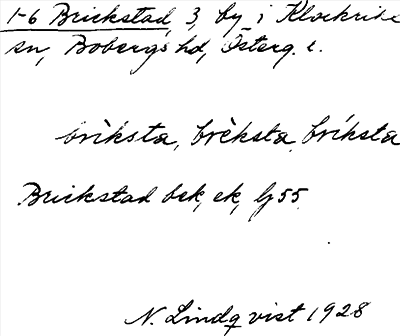 1-6 Brickstad, 3, by i Klockrike
sn, Bobergs hd, Österg. l.
brìksta, brèksta, bríksta
Brickstad bek, ek, bj 55
N. Lindqvist 1928